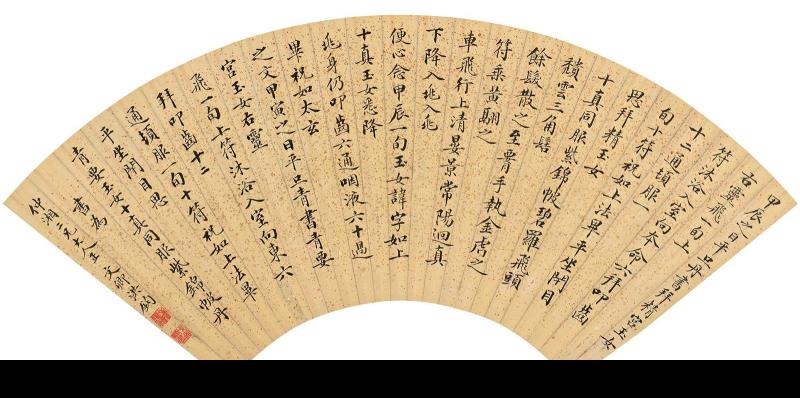 甲辰之日平旦丹書拜精宮玉女
右靈飛一旬上
符沐浴入室向本命六拜叩齒
十二通頓服一
旬十符祝如上法畢平坐閉目
思拜精玉女
十真同服紫錦帔碧羅飛頭
積雲三角髻
餘髮散之至腰手執金虎之
符乘黃翮之
車飛行上清晏景常陽迴真
下降入兆入兆
便心念甲辰一旬玉女諱字如上
十真玉女悉降
兆身仍叩齒六通咽液六十過
畢祝如太玄
之文甲寅之日平旦青書青要
宮玉女右靈
飛一旬上符沐浴入室向東六
拜叩齒十二
通頓服一旬十符祝如上法畢
平坐閉目思
青要玉女十真同服紫錦帔丹
書為
仲淵兄大人正 文卿洪鈞